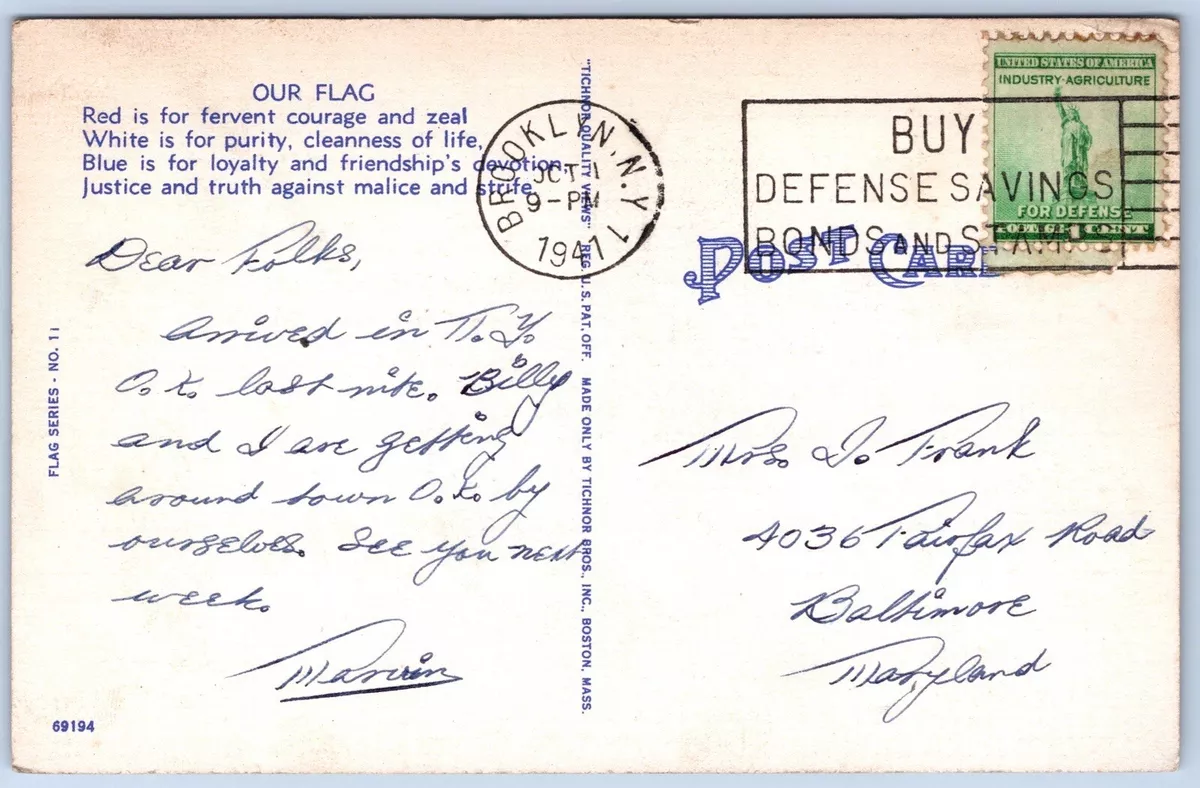 OUR FLAG
Red is for fervent courage and zeal
White is for purity, cleanness of life,
Blue is for loyalty and friendship's devotion,
Justice and truth against malice and strife.
Dear Folks,
Arrived in N.Y.
O.K. last nite. Billy
and I are getting
around town O.K. by
ourselves. See you next
week.
Marvin
69194
FLAG SERIES - NO. 11
"TICHNOR QUALITY VIEWS" REG. U.S. PAT. OFF. MADE ONLY BY TICHNOR BROS., INC., BOSTON, MASS.
BROOKLYN, N.Y.
OCT 1
9-PM
1941
BUY
DEFENSE SAVINGS
BONDS AND STAMPS
UNITED STATES OF AMERICA
INDUSTRY-AGRICULTURE
FOR DEFENSE
POSTAGE 1 CENT
POST CARD
Mrs. I. Frank
4036 Fairfax Road
Baltimore
Maryland